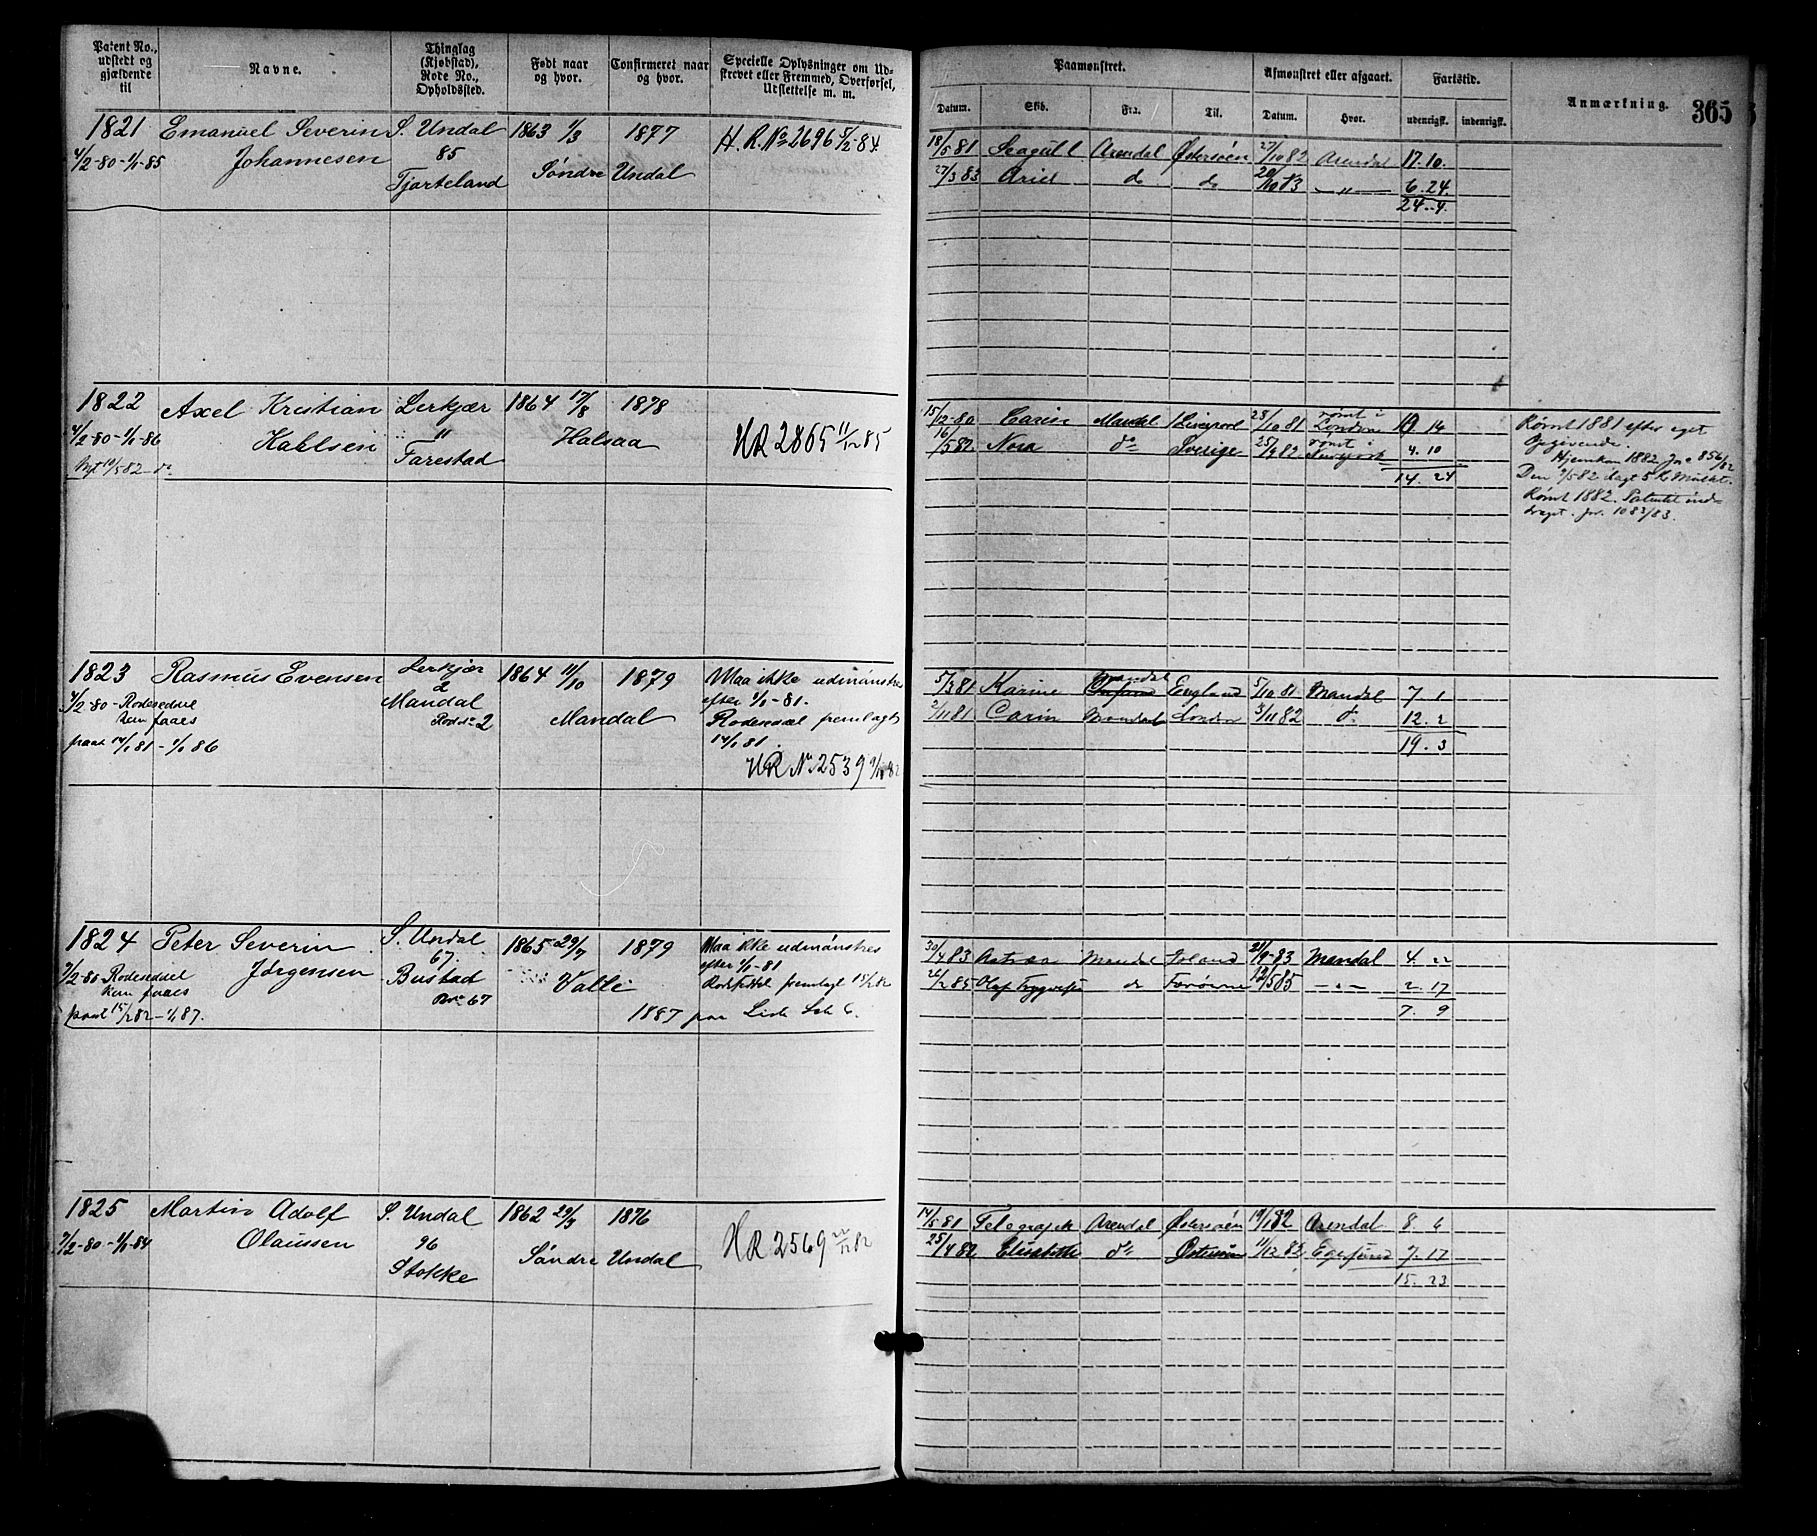 Patent No., udstedt og gjældende til
Navne.
Thinglag (Kjøbstad), Rode No., Opholdssted.
Født naar og hvor.
Confirmeret naar og hvor.
Specielle Oplysninger om Udskrevet eller Fremmed, Overførsel, Udslettelse m. m.
Paamønstret.
Afmønstret eller afgaaet.
Fartstid.
Anmærkning.
365
Datum.
Skib.
Fra.
Til.
Datum.
Hvor.
udenrigsk.
indenrigsk.
1821 Emanuel Severin S. Undal 1863 1/3 1877 H. R. No 2696 5/2-84.
4/2-80-1/1-85 Johannesen 85 Søndre Undal
Tjorteland
18/5 81 Seagull Arendal Østersøen 27/10 82 Arendal 17. 10.
27/3 83 Ariel do do 20/10 83 — " — 6. 24.
24. 4.
1822 Axel Kristian Lerkjær 1864 17/8 1878
4/2-80-1/1-86 Kahlsen " Halsaa HR 2865 11/12 85
Nyt 10/5 82 - do Farestad
15/12-80 Carin Mandal Liverpool 28/10 81 rømt i London 10 14
16/5 82 Nora do Sverige 25/9 82 rømt i Newyork 4. 10
14. 24
Rømt 1881 efter eget
Opgivende.
Hjemkom 1882 Jno 856/82
Den 9/5 82 idagt 5 Kr Mulkt.
Rømt 1882. Patentet ind-
draget. Jno. 1083/83.
1823 Rasmus Evensen Lerkjær 1864 11/10 1879 Maa ikke udmønstres
4/2-80 - Rodesedsel 2 efter 1/1-81.
kun faaes Mandal Mandal Rodesedsel fremlagt
paat 14/1 81 - 1/1 86 Rode 2 14/1 81.
HR No 2539
5/3 81 Karine Mandal England 5/10 81 Mandal 7 1
2/11 81 Carin Mandal London 3/11 82 do 12. 2
19. 3
1824 Peter Severin S. Undal 1865 29/7 1879 Maa ikke udmønstres
7/2-80 Rodesedsel Jørgensen 67. Valle efter 1/1-81
kun faaes Bustad Rodesedsel fremlagt 15/2 82
paat 15/2 82 - 1/1 87. No 67 1887 paa Liste Lit C.
30/4 83 Astræa Mandal Island 21/9-83 Mandal 4. 22
26/2 85 Olaf Trygveson do Færøerne 12/5 85 — " — 2. 17
7. 9
1825 Martin Adolf S. Undal 1862 29/7 1876
7/2-80-1/1-84 Olaussen 96 Søndre Undal HR 2569 22/12 82
Stokke
14/5 81 Telegrafek Arendal Østersøen 19/1 82 Arendal 8. 6
25/4 82 Elisabeth do Østersøen 11/12 82 Egersund 7. 17
15. 23